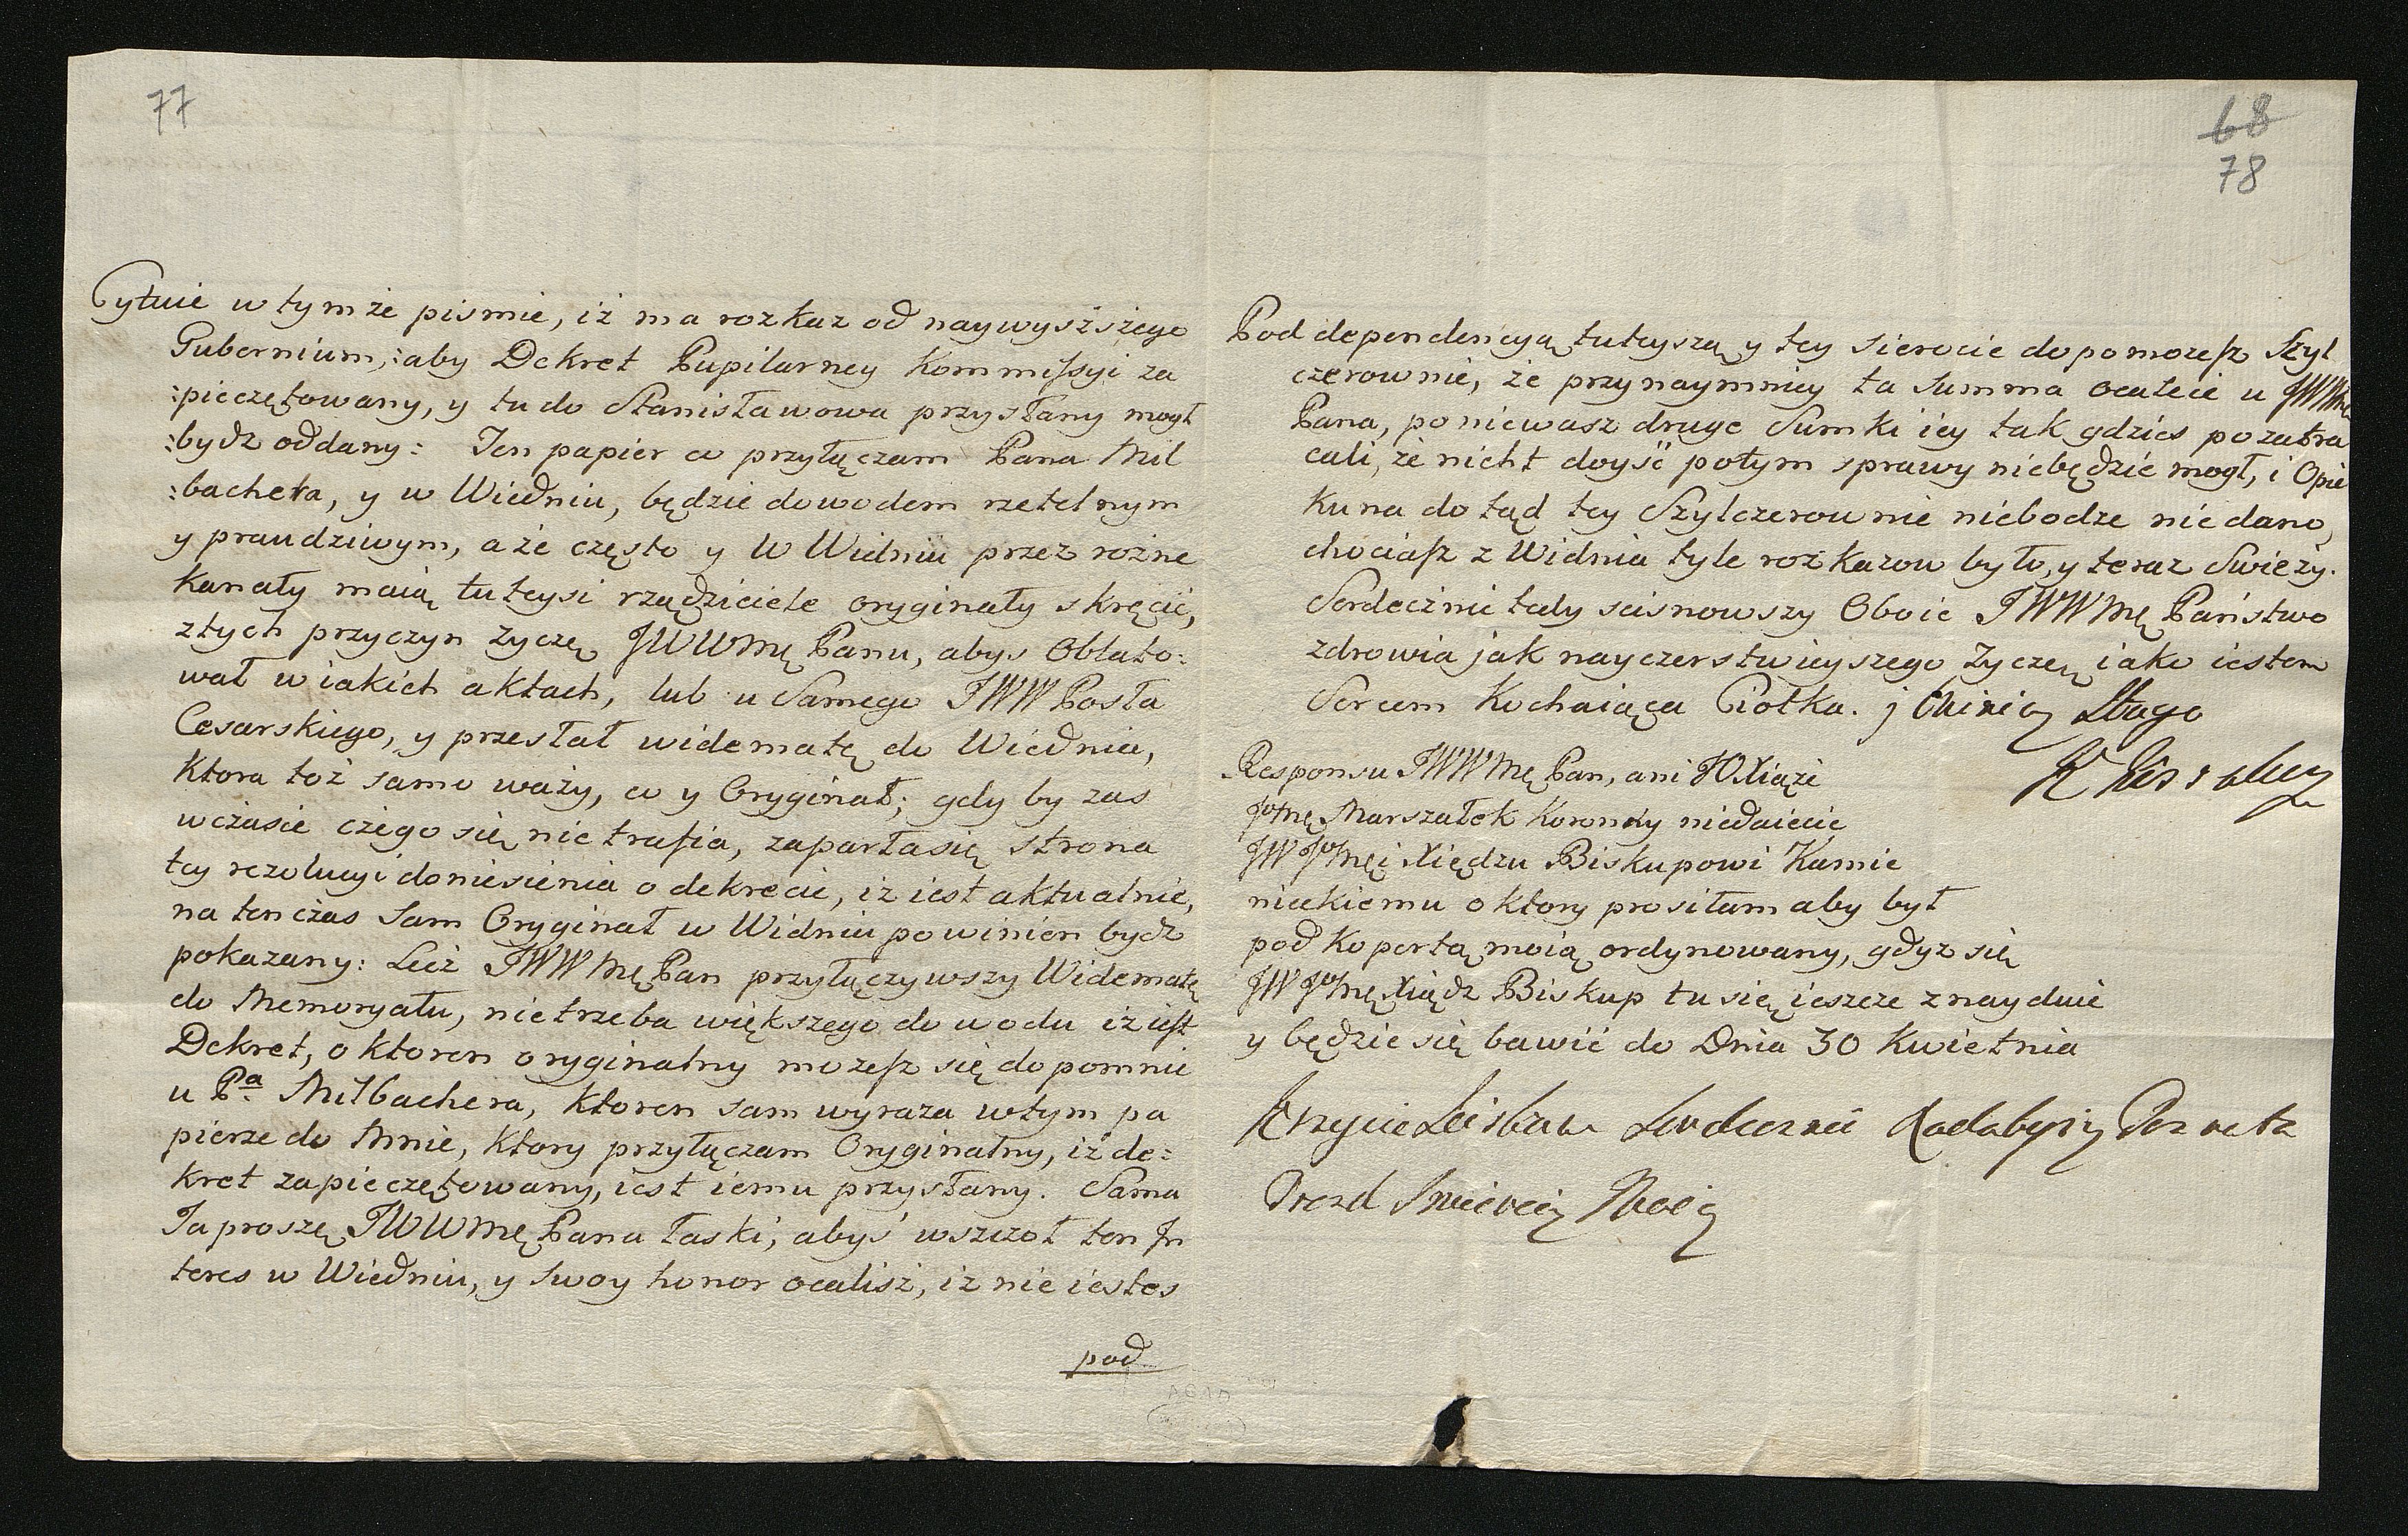 77
Cytuie w tymże pismie, iż ma rozkaz od naywyszszego
Gubernium, :aby Dekret Pupilarney Kommissyi za
:pieczętowany, y tu do Stanisławowa przysłany mogł
:bydz oddany: Ten papier co przyłączam Pana Mil
:bachera, y w Wiedniu, będzie dowodem rzetelnym
y prawdziwym, a że często y w Widniu przez rożne
kanały maią tuteysi rządziciele oryginały skręcić,
z tych przyczyn życzę JWWMę Panu, abys Oblato:
wał w iakich aktach, lub u Samego JWW Posła
Cesarskiego, y przesłał widematę do Wiednia,
Ktora toż samo waży, co y Oryginał; gdy by zas
w czasie czego się nie trafia, zaparła się strona
tey rezolucyi doniesienia o dekrecie, iż iest aktualnie,
na ten czas Sam Oryginał w Widniu powinien bydz
pokazany: Lecz JWWMę Pan przyłączywszy Widematę
do Memoryału, nie trzeba większego dowodu iż iest
Dekret, o ktoren oryginalny mozesz się dopomnic
u Pa Milbachera, ktoren sam wyraza w tym pa
pierze do Mnie, ktory przyłączam Oryginalny, iż de:
kret zapieczętowany, iest iemu przysłany. Sama
Ja proszę JWWMę Pana łaski, abyś wszczoł ten In
teres w Wiedniu, y swoy honor ocalisz, iż nie iestes
pod
68
78
Pod dependencyą tuteyszą y tey sierocie dopomozesz Szyl
czerownie, że przynaymniey ta summa ocaleie u JWWMę
Pana, poniewasz druge Sumki iey tak gdzies pozatra
cali, że nicht doyść potym sprawy niebędzie mogł, i Opie
kuna do tąd tey Szylczerownie niebodze nie dano,
chociasz z Widnia tyle rozkazow było, y teraz Swiezy.
Serdecznie tedy scisnowszy Oboie JWWMę Państwo
zdrowia jak nayczerstwieyszego życzę, iako iestem
Sercem Kochaiąca Ciotka. j Sługo
Responsu JWWMę Pan, ani JO Xiąże
JoMę Marszałek Koronny niedaiecie
JW JoMęi Xiędzu Biskupowi Kamie
nieckiemu o ktory prosiłam aby był
pod Kopertą moią ordynowany, gdyz się
JW JoMę Xiądz Biskup tu się ieszcze znayduie
y będzie się bawić do Dnia 30 Kwietnia
Serdecznie
Przed Smiercią Moią